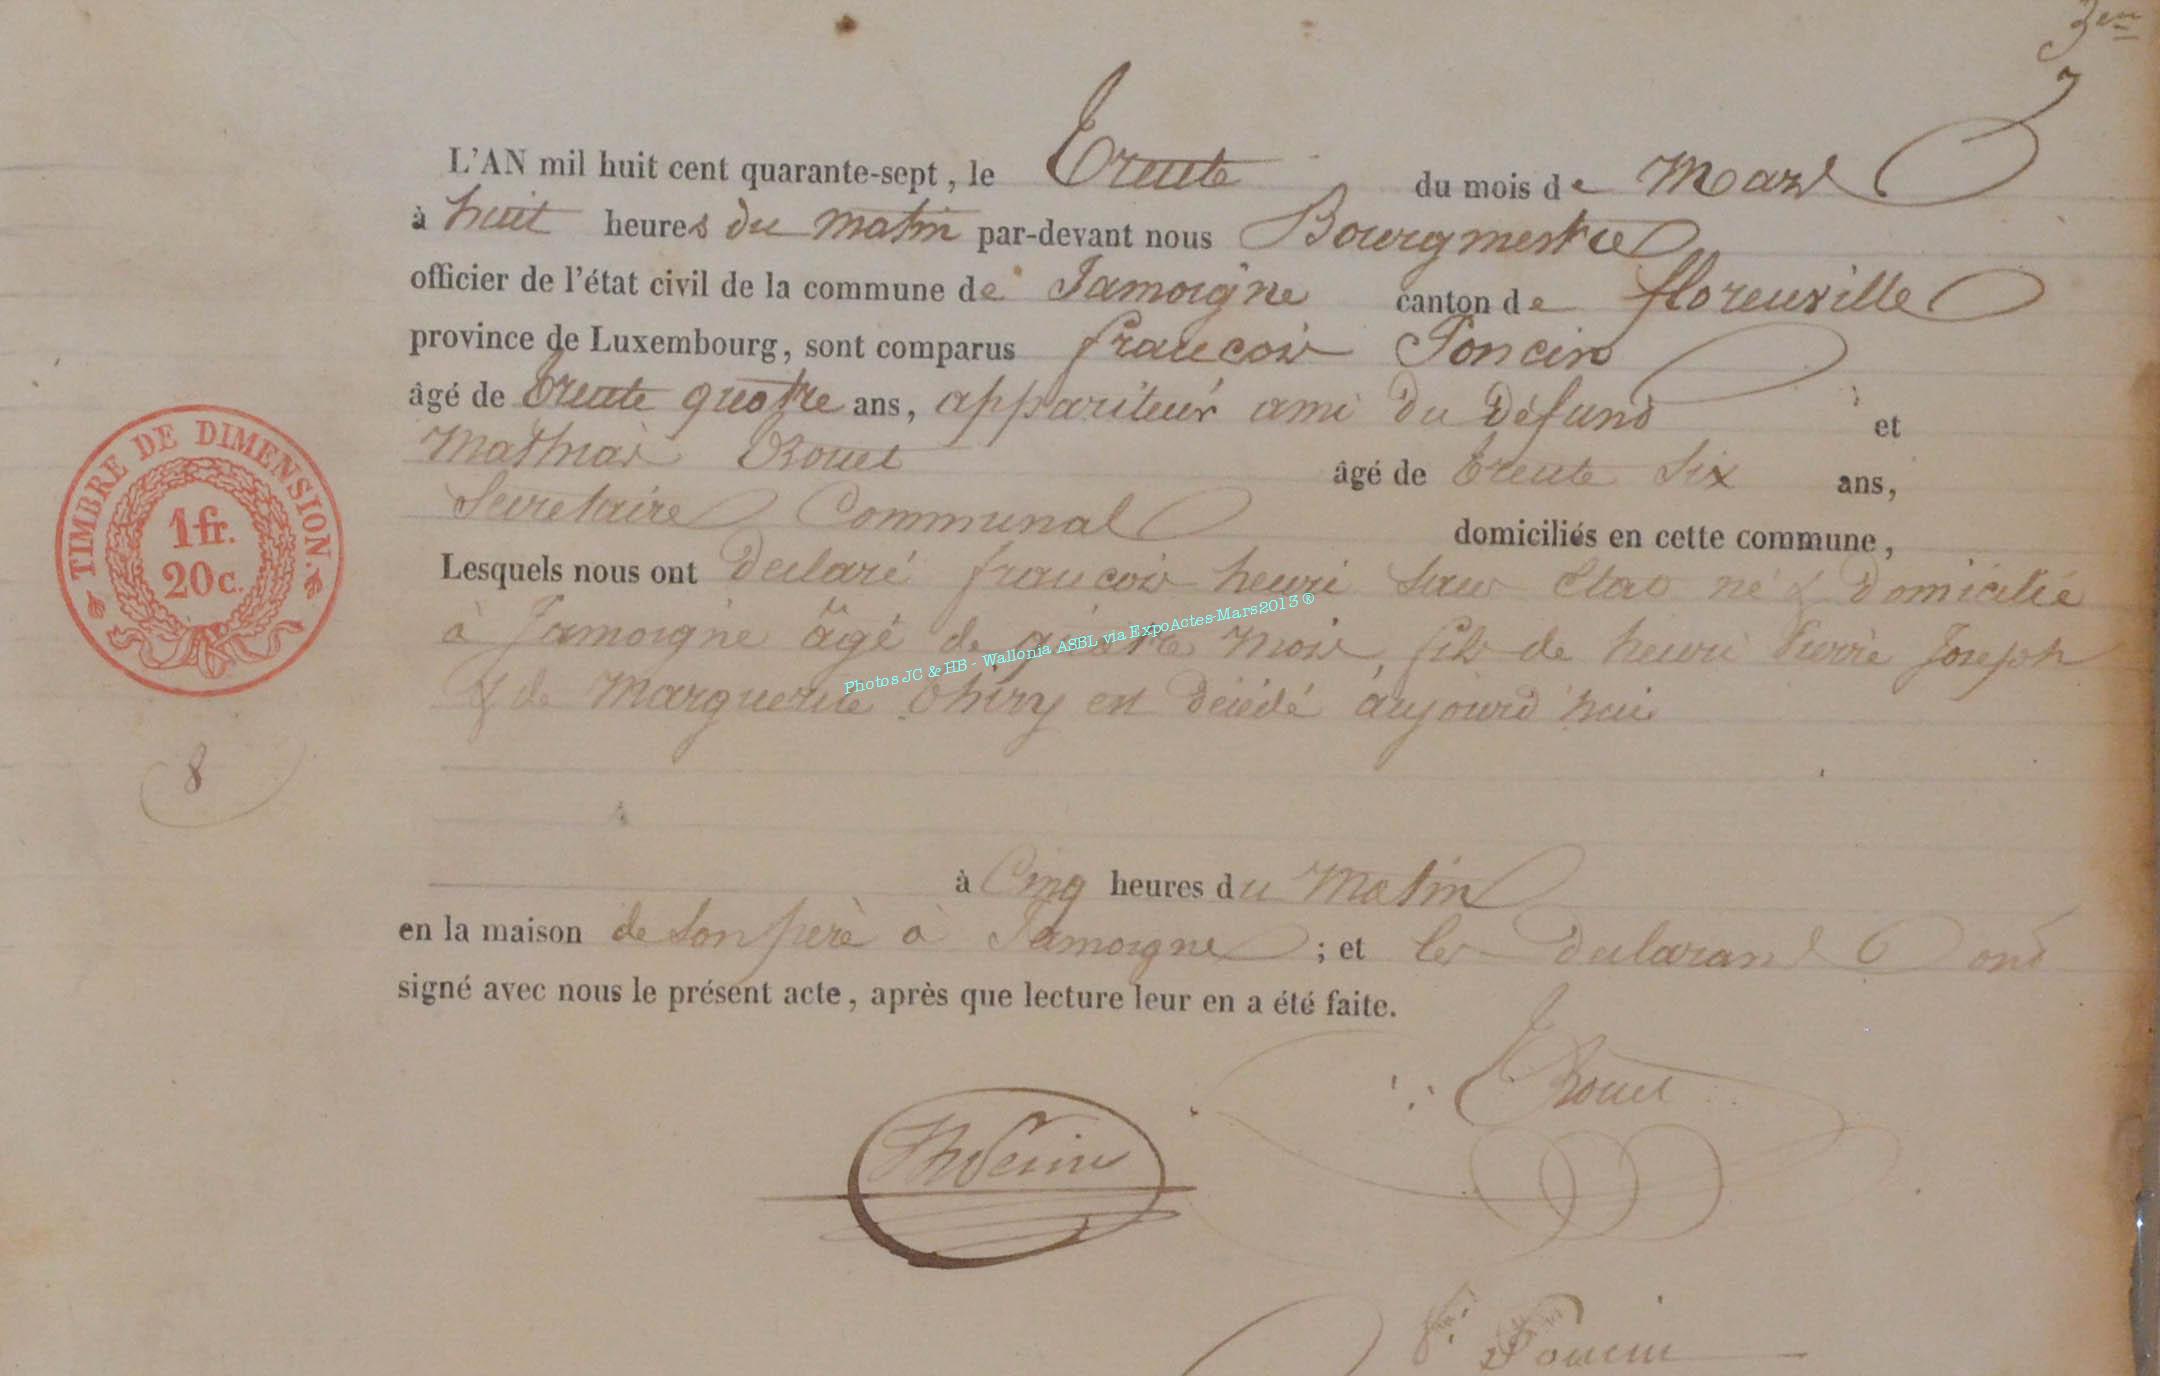 3em
L'AN mil huit cent quarante-sept, le Trente du mois de Mars
à huit heures du matin par-devant nous Bourgmestre
officier de l'état civil de la commune de Jamoigne canton de florenville
province de Luxembourg, sont comparus francois Poncin
âgé de trente quatre ans, appariteur ami du défunt et
Mathias Rouet âgé de trente six ans,
Secretaire Communal domiciliés en cette commune,
Lesquels nous ont declaré francois henri sans etat né & domicilié
à Jamoigne âgé de mois, fils de henri Pierre Joseph
& de Marguerite thiry est décédé aujourd'hui
à Cinq heures du Matin
en la maison de son père à Jamoigne ; et les declarans ont
signé avec nous le présent acte, après que lecture leur en a été faite.
Rouet
Poncin
TIMBRE DE DIMENSION.
1 fr.
20 c.
8
Photos JC & HB - Wallonia ASBL via ExpoActes-Mars2013 ®